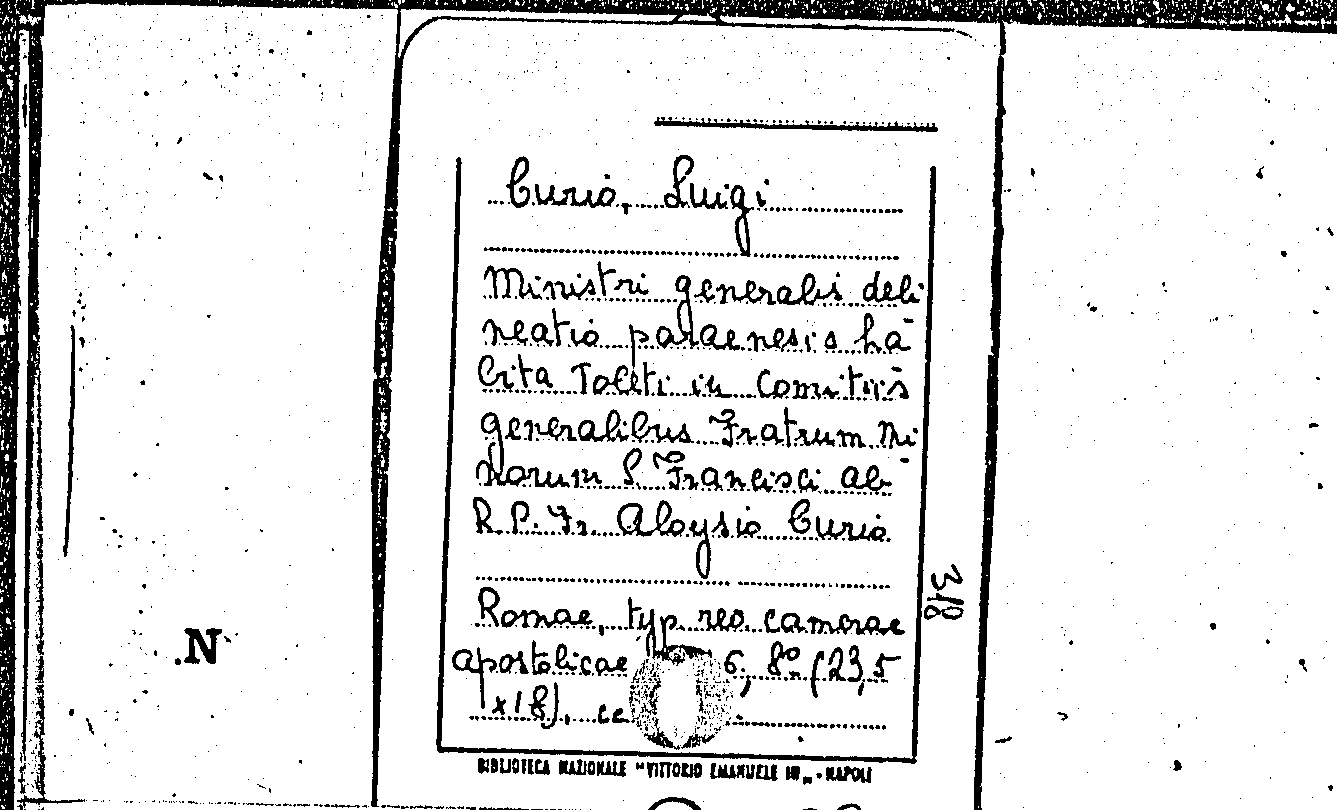 Curio, Luigi
Ministri generalis deli-
neatio paraenesis ha-
bita Toleti in Comitiis
generalibus Fratrum Mi-
norum S. Francisci ab
R. P. Fr. Aloysio Curio
Romae, typ. reo. camerae
apostolicae 6, 8º (23,5
x18). cc
318
N
BIBLIOTECA NAZIONALE "VITTORIO EMANUELE III„ - NAPOLI